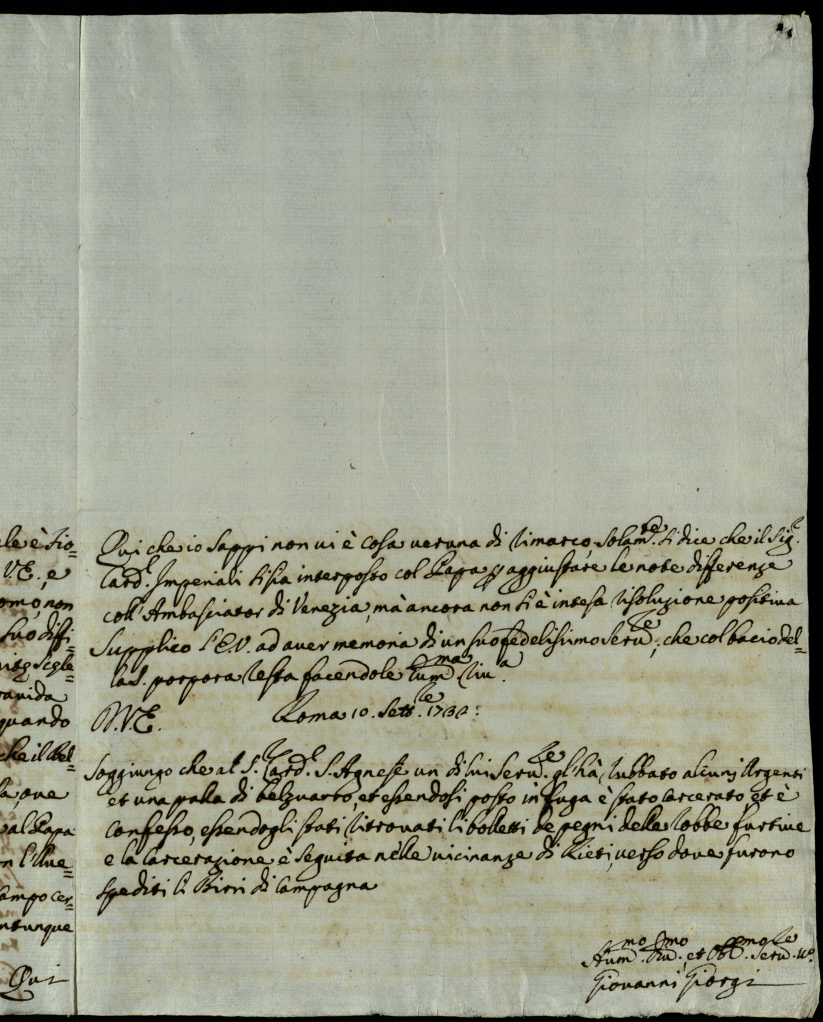 ele è Sio=
V.E., e
omo, non
suo diffi=
ravida
quando
che il Bel=
la, ove
al Papa
n l'Ave=
ampo cer=
ntunque
Qui
Qui che io sappi non vi è cosa veruna di rimarco, solam.te si dice che il Sig.r
Card.l Imperiali si sia interposto col Papa p aggiustare le note differenze
coll'Ambasciator di Venezia, mà ancora non si è intesa risoluzione positiva
Supplico l'E.V. ad aver memoria di un suo fedelissimo Serv.re, che col bacio del=
la S. porpora resta facendole hum.ma riv.a
D.V.E. Roma 10. Sett.re 173
Soggiungo che al S.r Card.l S. Agnese un di lui Serv.re gl'hà rubbato alcuni Argenti
et una palla di belzuarro, et essendosi posto in fuga è stato carcerato et è
confesso, essendogli stati ritrovati li bolletti de pegni delle robbe furtive
e la carcerazione è seguita nelle vicinanze di Rieti, verso dove furono
spediti li Birri di Campagna
Hum.mo Div.mo, et Obb.mo Serv.re v.o
Giovanni Giorgi